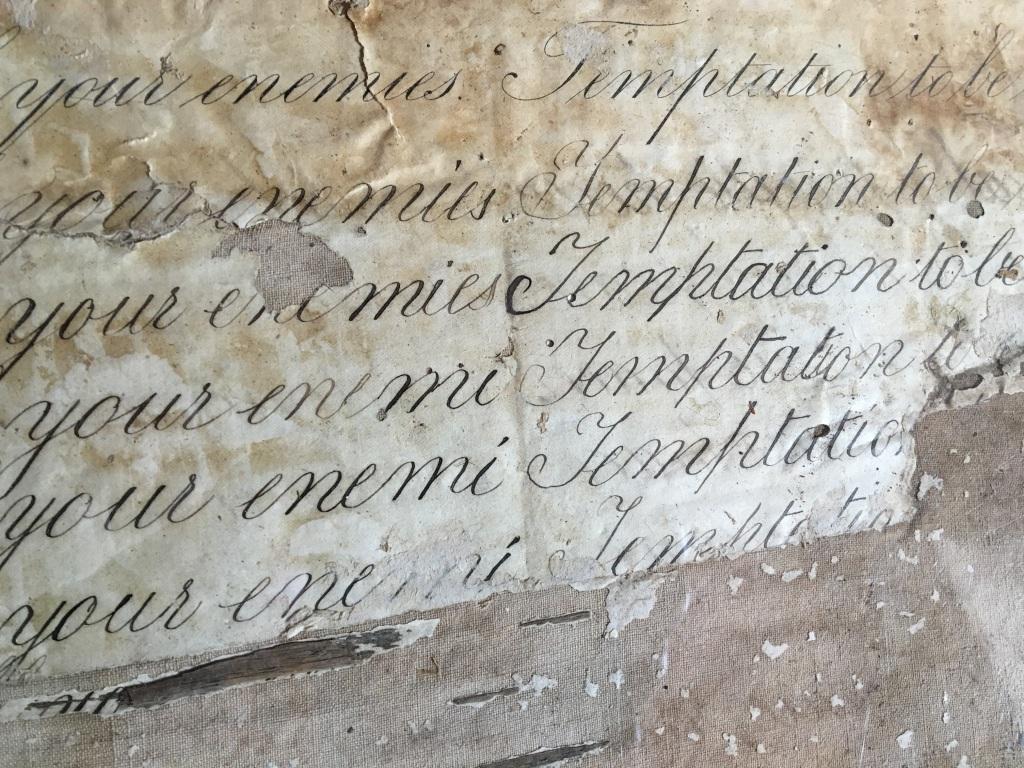 your enemies. Temptation to be
your enemies Temptation to be
your enemies Temptation to be
your enemi Temptation
your enemi Temptatio
your enemi Temptatio